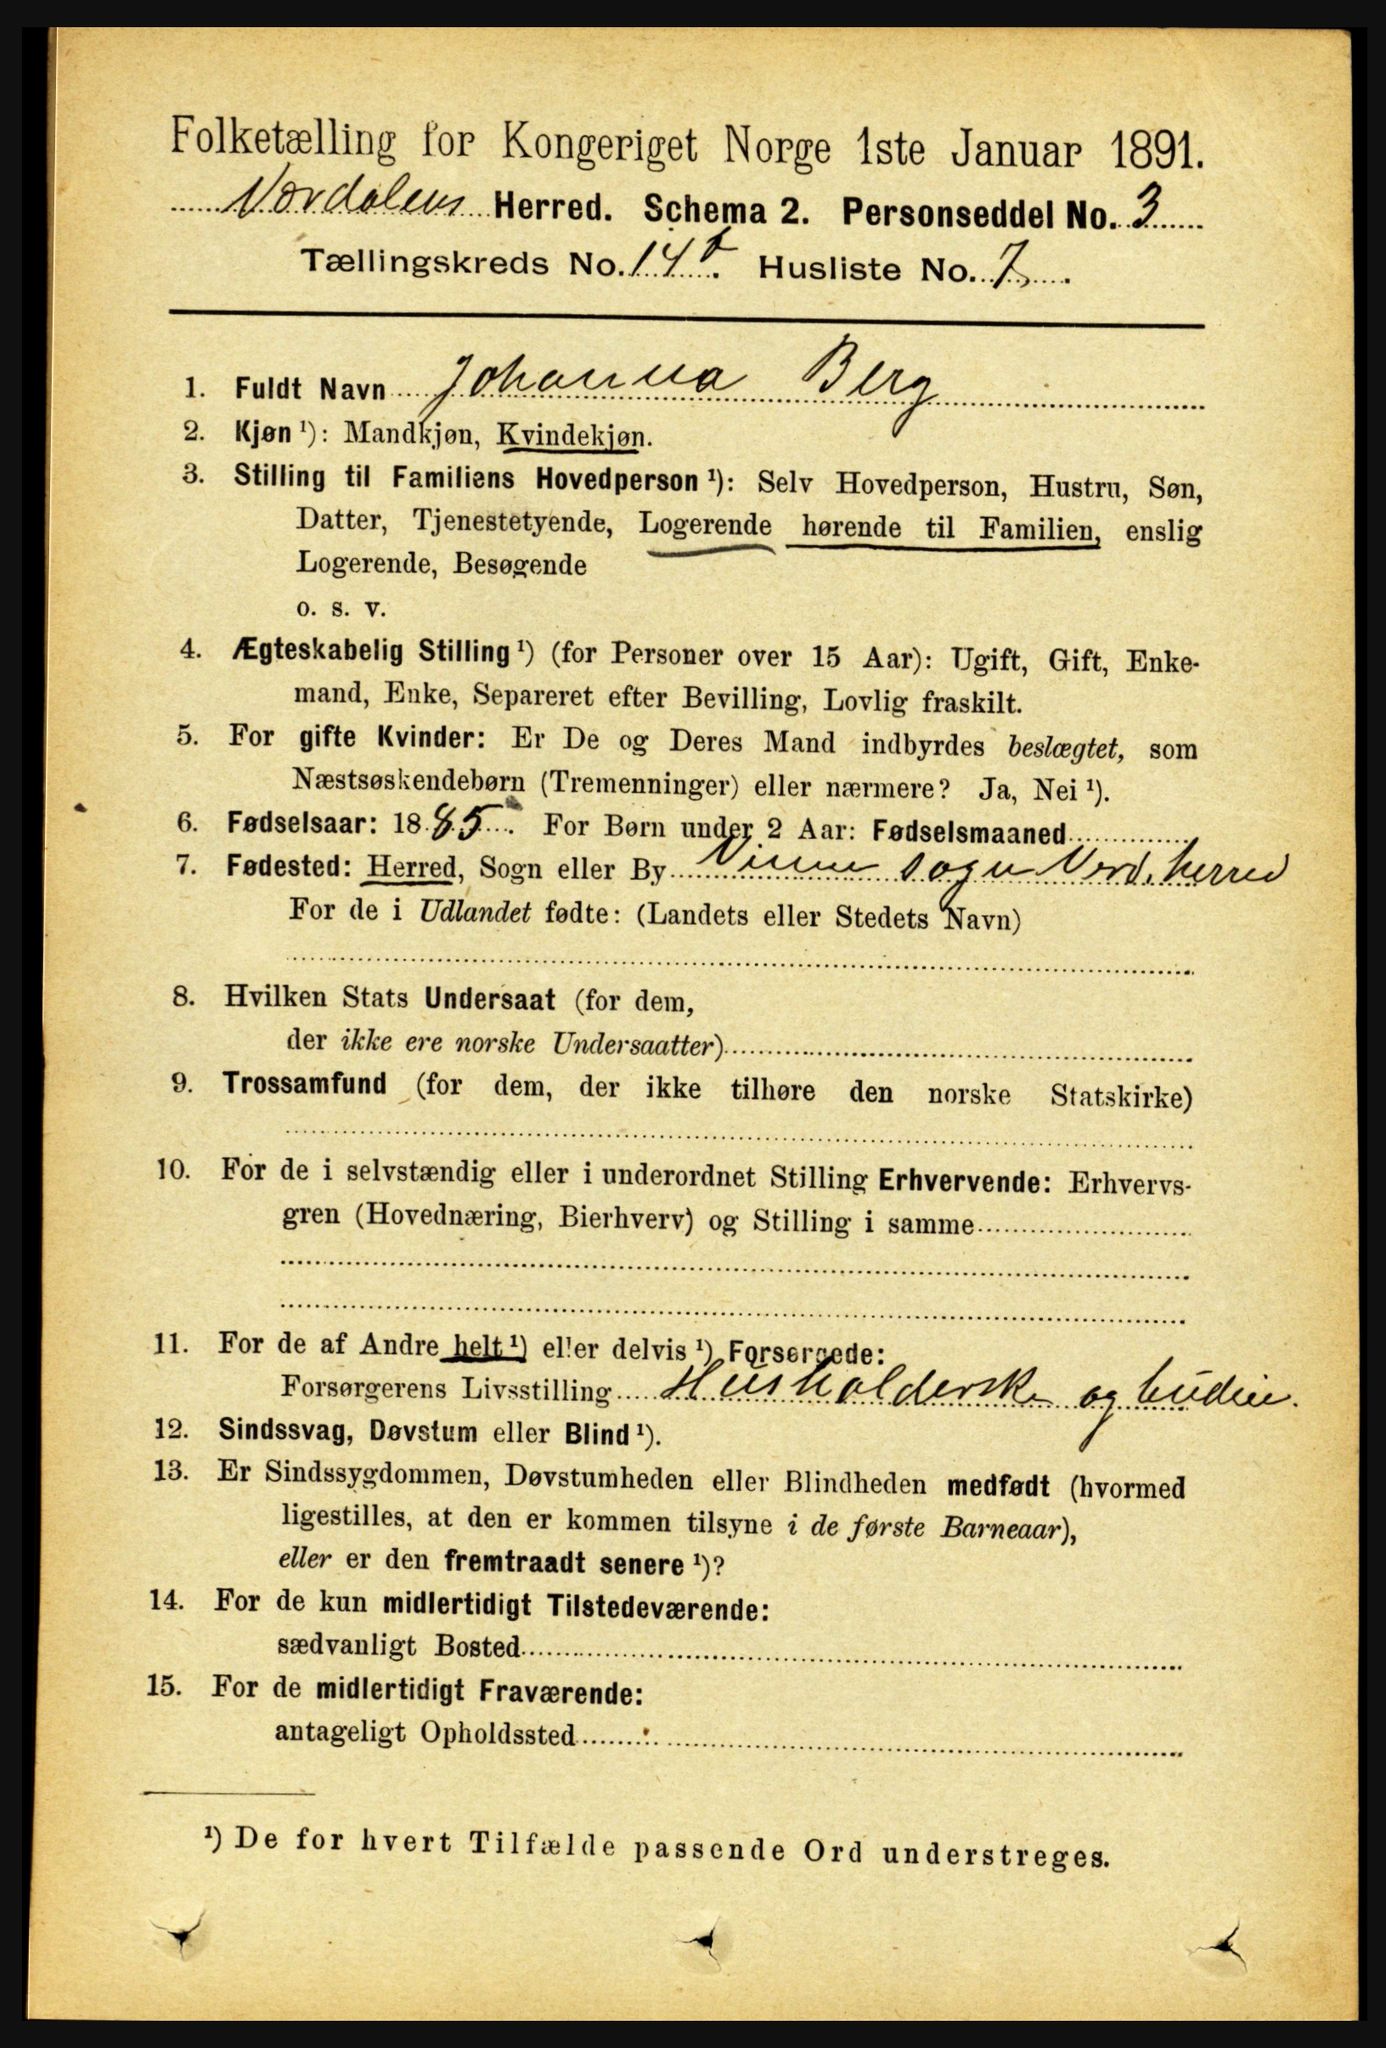 Folketælling for Kongeriget Norge 1ste Januar 1891.
Værdalens Herred. Schema 2. Personseddel No. 3
Tællingskreds No. 14 Husliste No. 7
1. Fuldt Navn Johanna Berg
2. Kjøn ¹): Mandkjøn, Kvindekjøn.
3. Stilling til Familiens Hovedperson ¹): Selv Hovedperson, Hustru, Søn,
Datter, Tjenestetyende, Logerende hørende til Familien, enslig
Logerende, Besøgende
o. s. v.
4. Ægteskabelig Stilling ¹) (for Personer over 15 Aar): Ugift, Gift, Enke-
mand, Enke, Separeret efter Bevilling, Lovlig fraskilt.
5. For gifte Kvinder: Er De og Deres Mand indbyrdes beslægtet, som
Næstsøskendebørn (Tremenninger) eller nærmere? Ja, Nei ¹).
6. Fødselsaar: 1885. For Børn under 2 Aar: Fødselsmaaned
7. Fødested: Herred, Sogn eller By Vinne sogn Værd. herred
For de i Udlandet fødte: (Landets eller Stedets Navn)
8. Hvilken Stats Undersaat (for dem,
der ikke ere norske Undersaatter)
9. Trossamfund (for dem, der ikke tilhøre den norske Statskirke)
10. For de i selvstændig eller i underordnet Stilling Erhvervende: Erhvervs-
gren (Hovednæring, Bierhverv) og Stilling i samme
11. For de af Andre helt ¹) eller delvis ¹) Forsørgede:
Forsørgerens Livsstilling Husholderske og budeie.
12. Sindssvag, Døvstum eller Blind ¹).
13. Er Sindssygdommen, Døvstumheden eller Blindheden medfødt (hvormed
ligestilles, at den er kommen tilsyne i de første Barneaar),
eller er den fremtraadt senere ¹)?
14. For de kun midlertidigt Tilstedeværende:
sædvanligt Bosted
15. For de midlertidigt Fraværende:
antageligt Opholdssted
¹) De for hvert Tilfælde passende Ord understreges.